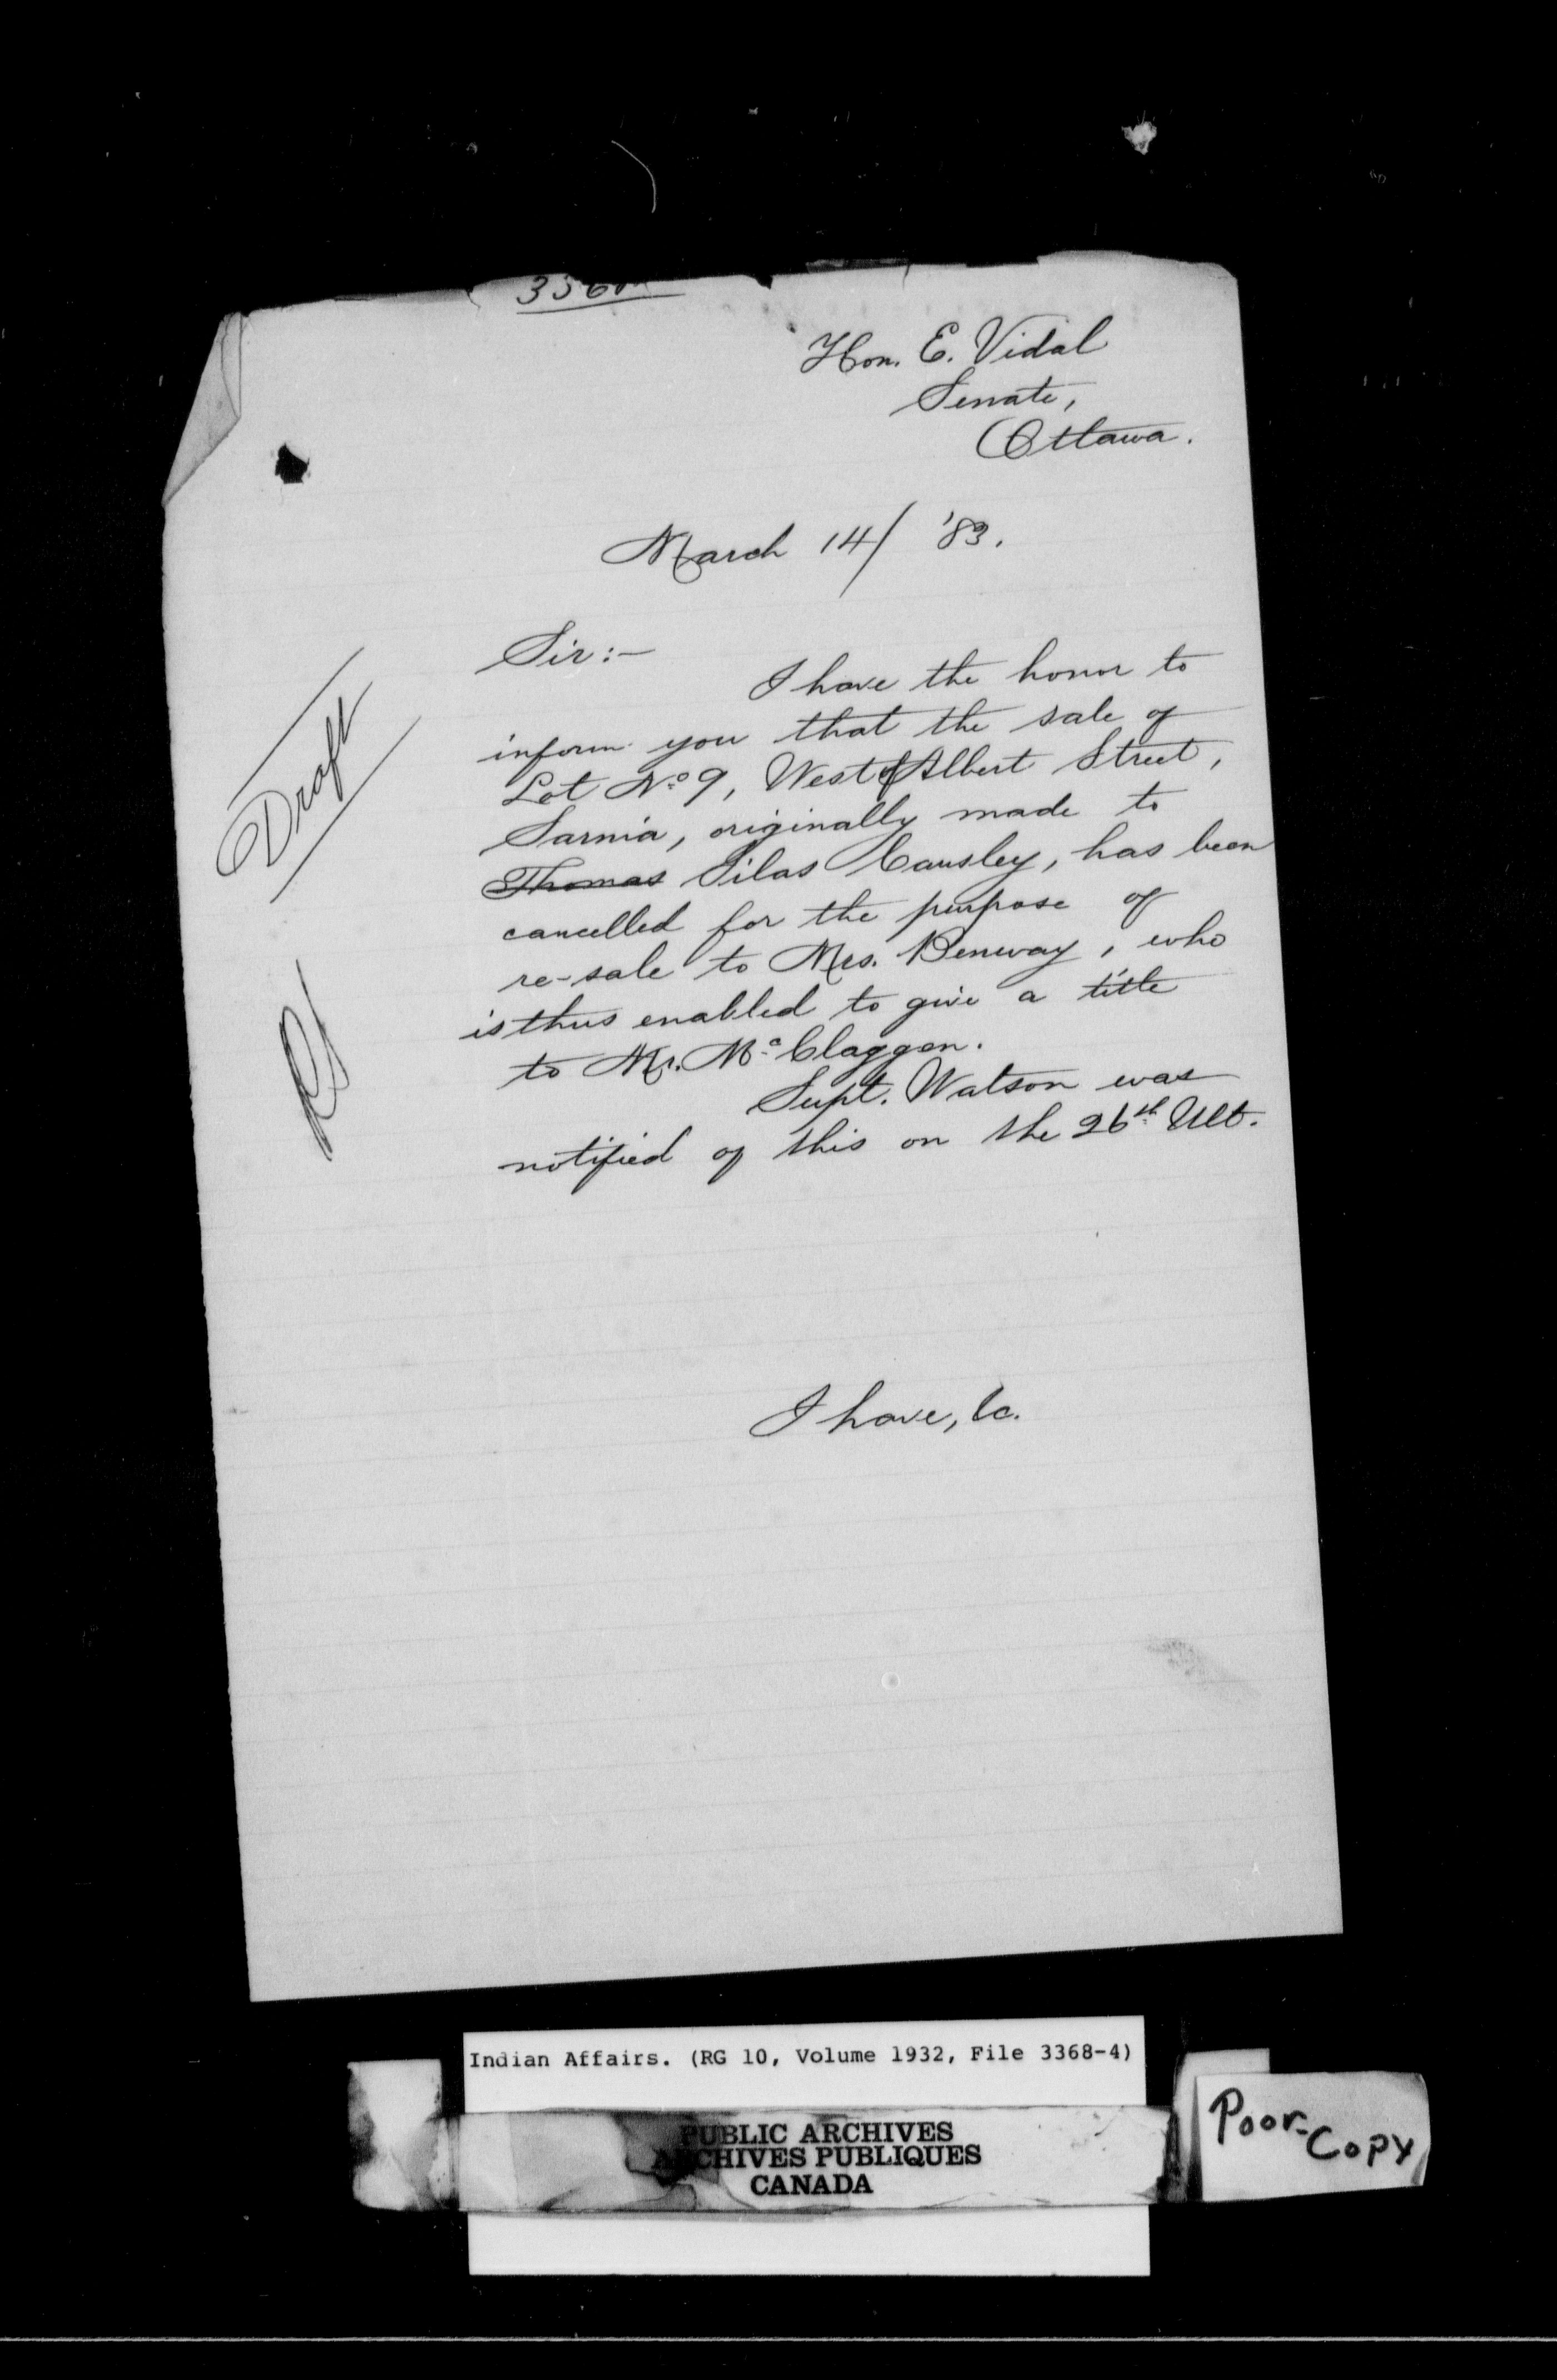 Hon. E. Vidal
Senate,
Ottawa.
March 14/ '83.
Draft
Sir:-
I have the honor to
inform you that the sale of
Lot No. 9, West of Albert Street,
Sarnia, originally made to
Thomas Silas Causley, has been
cancelled for the purpose of
re-sale to Mrs. Benway, who
is thus enabled to give a title
to Mr. Mc Claggon.
Supt. Watson was
notified of this on the 26th Ult.
I have, &c.
Indian Affairs. (RG 10, Volume 1932, File 3368-4)
PUBLIC ARCHIVES
ARCHIVES PUBLIQUES
CANADA
Poor Copy